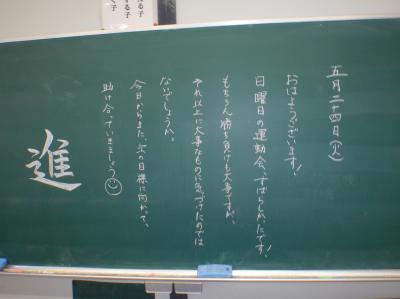 る子
する子
く子
五月二十四日(火)
おはようございます!
日曜日の運動会、すばらしかったです!
もちろん勝ち負けも大事ですが、
それ以上に大事なものに気づけたのでは
ないでしょうか。
今日からまた、次の目標に向かって、
助け合っていきましょう
進